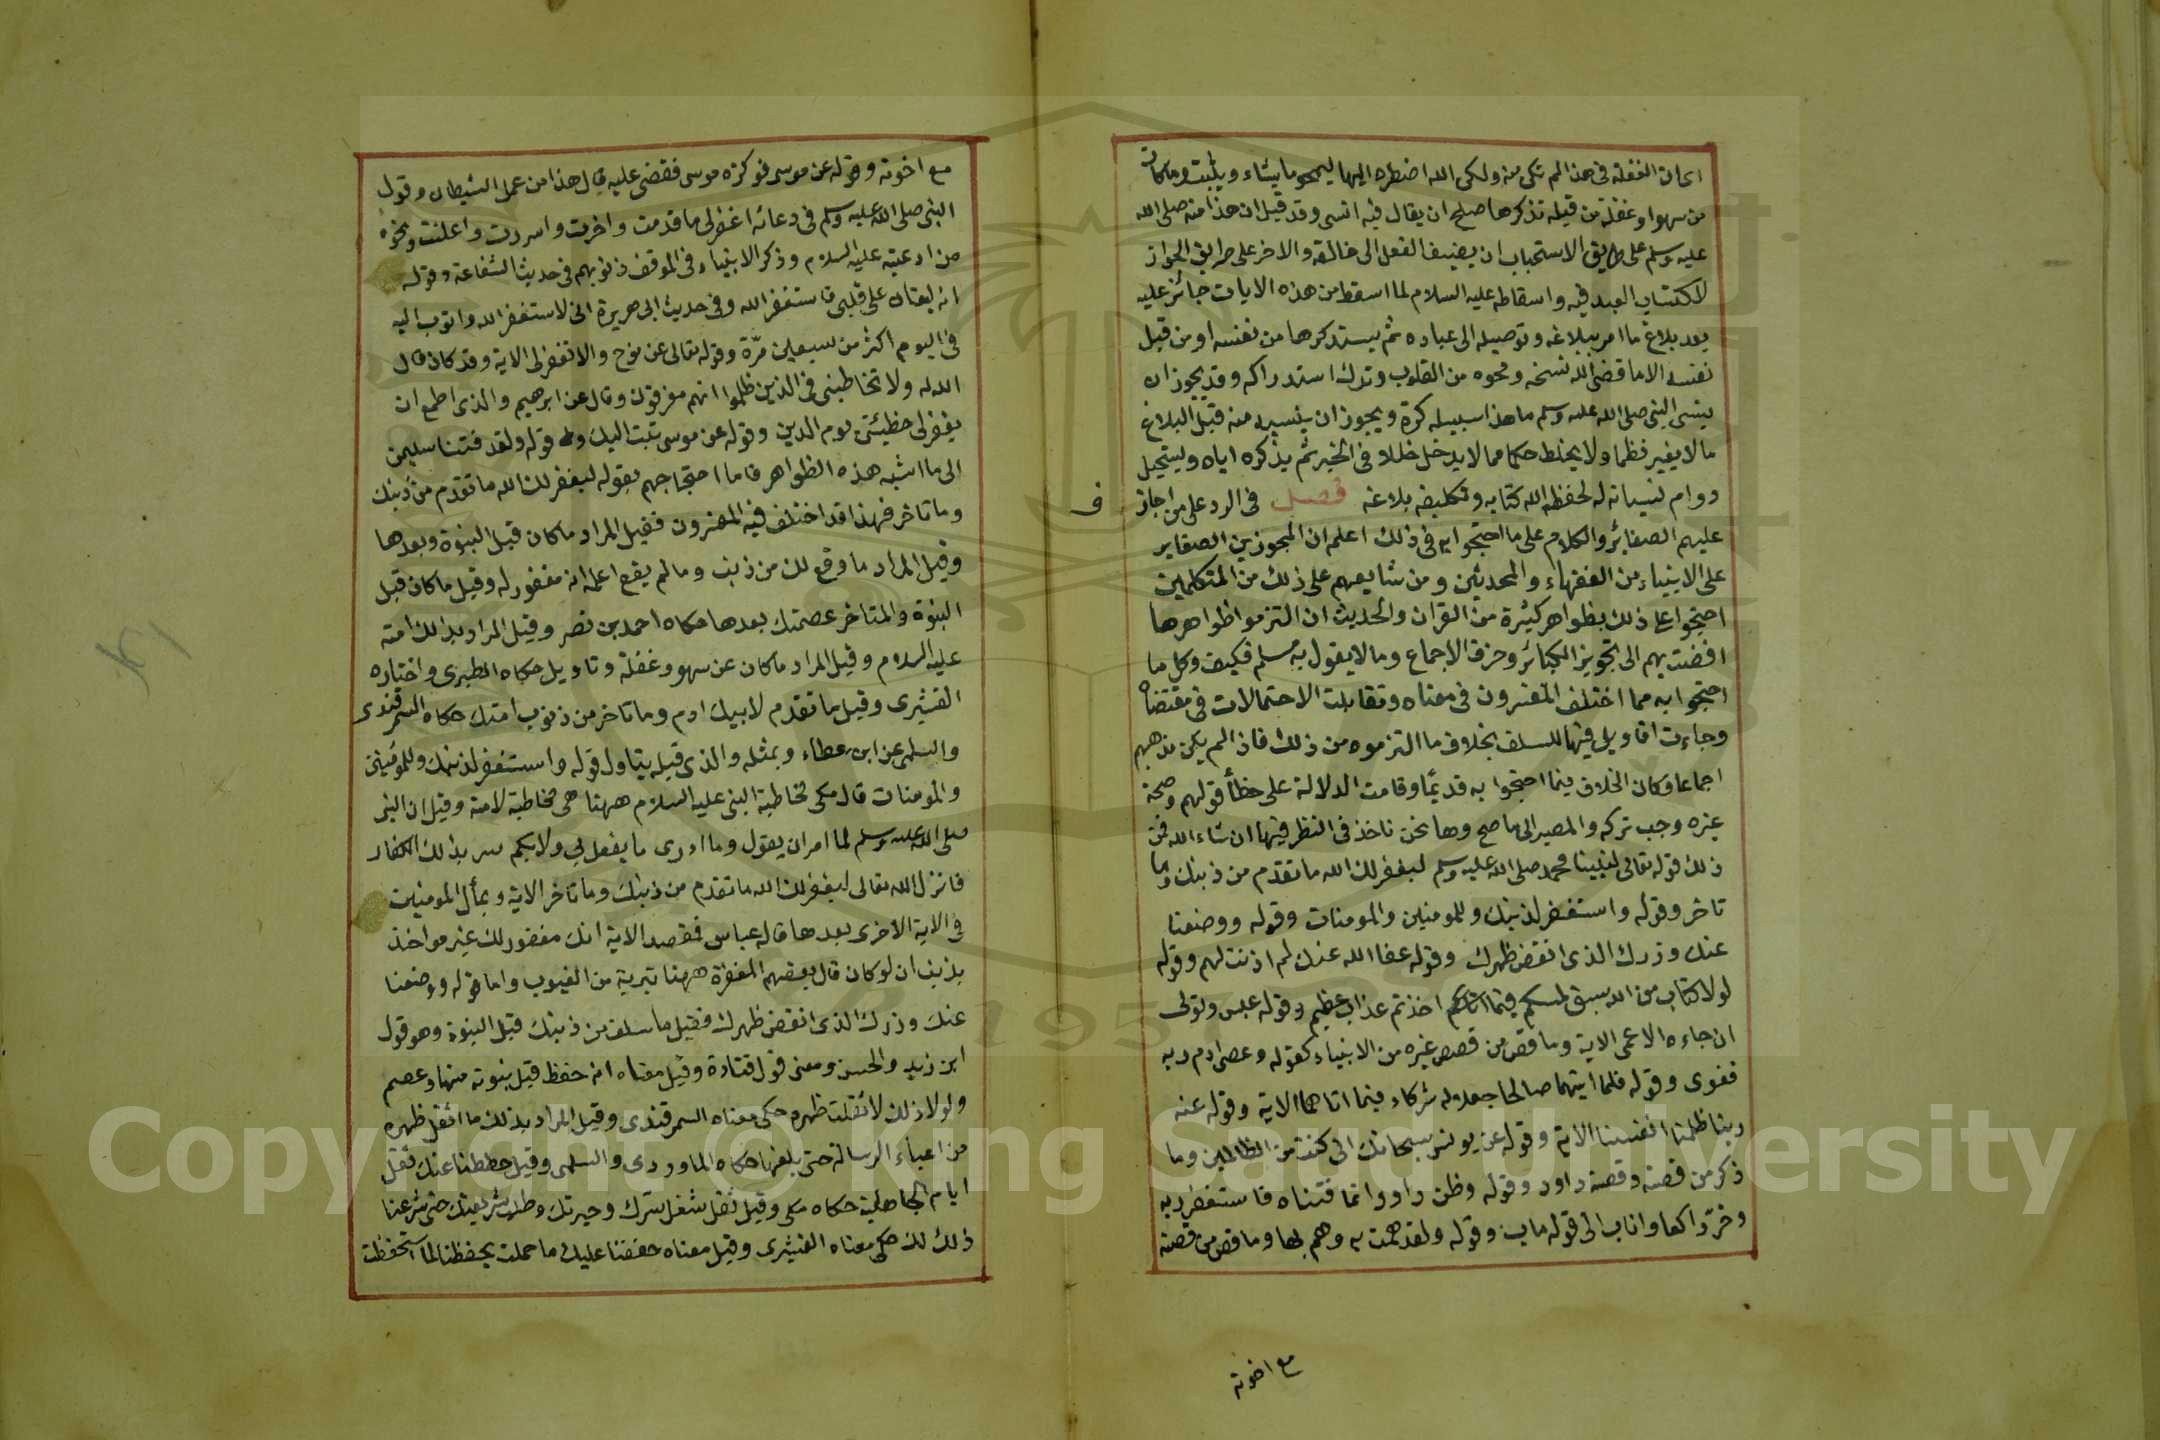 اى ان الغفلة فى هذا لم تكن منه ولكن الله اضطره اليها ليمحو ما يشاء ويثبت وما كان
من سهو او غفلة من قبله تذكرها صلح ان يقال فيه انسى وقد قيل ان هذا منه صلى الله
عليه وسلم على طريق الاستحباب ان يضيف الفعل الى خالقه والاخر على طريق الجواز
لاكتساب العبد فيه واسقاطه عليه السلام لما اسقط من هذه الايات جائز عليه
بعد بلاغ ما امر ببلاغه وتوصيله الى عباده ثم يستذكرها من نفسه او من قبل
نفسه الا ما قضى الله نسخه ومحوه من القلوب وترك استدراكه وقد يجوز ان
ينسى النبى صلى الله عليه وسلم ما هذا سبيله كرة ويجوز ان ينسيه منه قبل البلاغ
ما لا يغير نظما ولا يخلط حكما مما لا يدخل خللا فى الخبر ثم يذكره اياه ويستحيل
دوام نسيانه له لحفظ الله كتابه وتكليفه بلاغه فصل فى الرد على من اجاز
ف
عليهم الصغائر والكلام على ما احتجوا به فى ذلك اعلم ان المجوزين الصغاير
على الانبياء من الفقهاء والمحدثين ومن شايعهم على ذلك من المتكلمين
احتجوا على ذلك بظواهر كثيرة من القران والحديث ان التزموا ظواهرها
افضت بهم الى تجويز الكبائر وخرق الاجماع وما لا يقول به مسلم فكيف وكل ما
احتجوا به مما اختلف المفسرون فى معناه وتقابلت الاحتمالات فى مقتضاه
وجاءت اقاويل فيها للسلف بخلاف ما التزموه من ذلك فاذا لم يكن مذهبهم
اجماعا وكان الخلاف فيما احتجوا به قديما وقامت الدلالة على خطأ قولهم وصحة
غيره وجب تركه والمصير الى ما صح وها نحن ناخذ فى النظر فيها ان شاء الله فمن
ذلك قوله تعالى لنبينا محمد صلى الله عليه وسلم ليغفر لك الله ما تقدم من ذنبك وما
تاخر وقوله واستغفر لذنبك وللمومنين والمومنات وقوله ووضعنا
عنك وزرك الذى انقض ظهرك وقوله عفا الله عنك لم اذنت لهم وقوله
لولا كتاب من الله سبق لمسكم فيما اخذتم عذاب عظيم وقوله عبس وتولى
ان جاءه الاعمى الاية وما قص من قصص غيره من الانبياء كقوله وعصى ادم ربه
فغوى وقوله فلما اتيهما صالحا جعلا له شركاء فيما اتاهما الاية وقوله عنه
ربنا ظلمنا انفسنا الاية وقوله عن يونس سبحانك انى كنت من الظالمين وما
ذكر من قصته وقصة داود وقوله وظن داود انما فتناه فاستغفر ربه
وخر راكعا واناب الى قوله ماب وقوله ولقد همت به وهم بها وما قص من قصته
مع اخوته
مع اخوته وقوله عن موسى فوكزه موسى فقضى عليه قال هذا من عمل الشيطان وقول
النبى صلى الله عليه وسلم فى دعائه اغفر لى ما قدمت واخرت واسررت واعلنت ونحوه
من ادعيته عليه السلام وذكر الانبياء فى الموقف ذنوبهم فى حديث الشفاعة وقوله
انه ليغان على قلبى فاستغفر الله وفى حديث ابى هريرة انى لاستغفر الله واتوب اليه
فى اليوم اكثر من سبعين مرة وقوله تعالى عن نوح والا تغفر لى الاية وقد كان قال
الله له ولا تخاطبنى فى الذين ظلموا انهم مغرقون وقال عن ابرهيم والذى اطمع ان
يغفر لى خطيئتى يوم الدين وقوله عن موسى تبت اليك وقوله ولقد فتنا سليمن
الى ما اشبه هذه الظواهر فاما احتجاجهم بقوله ليغفر لك الله ما تقدم من ذنبك
وما تاخر فهذا قد اختلف فيه المفسرون فقيل المراد ما كان قبل النبوة وبعدها
وقيل المراد ما وقع لك من ذنب وما لم يقع اعلمه انه مغفور له وقيل ما كان قبل
النبوة والمتاخر عصمتك بعدها حكاه احمد بن نصر وقيل المراد بذلك امته
عليه السلام وقيل المراد ما كان عن سهو وغفلة وتاويل حكاه الطبرى واختاره
القشيرى وقيل ما تقدم لابيك ادم وما تاخر من ذنوب امتك حكاه السمرقندى
والسلمى عن ابن عطاء وبمثله والذى قبله يتاول قوله واستغفر لذنبك وللمؤمنين
والمومنات قال مكى مخاطبة النبى عليه السلام ههنا هى مخاطبة لامته وقيل ان النبى
صلى الله عليه وسلم لما امر ان يقول وما ادرى ما يفعل بى ولا بكم سر بذلك الكفار
فانزل الله تعالى ليغفر لك الله ما تقدم من ذنبك وما تاخر الاية وبمأل المومنين
فى الاية الاخرى بعدها قاله عباس فمقصد الاية انك مغفور لك غير مواخذ
بذنب ان لو كان قال بعضهم المغفرة ههنا تبرية من العيوب واما قوله ووضعنا
عنك وزرك الذى انقض ظهرك فقيل ما سلف من ذنبك قبل النبوة وهو قول
ابن زيد والحسن ومعنى قول قتادة وقيل معناه انه حفظ قبل نبوته منها وعصم
ولولا ذلك لاثقلت ظهره حكى معناه السمرقندى وقيل المراد بذلك ما اثقل ظهره
من اعباء الرسالة حتى بلغها حكاه الماوردى والسلمى وقيل حططنا عنك ثقل
ايام الجاهلية حكاه مكى وقيل ثقل شغل سرك وحيرتك وطلب شريعتك حتى شرعنا
ذلك لك حكى معناه القشيرى وقيل معناه خففنا عليك ما حملت بحفظنا لما استحفظت
Copyright © King Saud University
1957